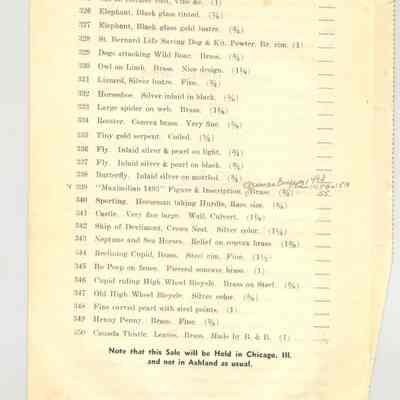 326 Elephant, Black glass tinted. (⅝)
327 Elephant, Black glass gold lustre. (⅝)
328 St. Bernard Life Saving Dog & Kit. Pewter. Br. rim. (1)
329 Dogs attacking Wild Boar. Brass.
330 Owl on Limb. Brass. Nice design.
331 Lizzard, Silver lustre. Fine.
332 Horseshoe. Silver inlaid in black.
333 Large spider on web. Brass.
334 Rooster. Convex brass. Very fine.
335 Tiny gold serpent. Coiled.
336 Fly. Inlaid silver & pearl on light.
337 Fly. Inlaid silver & pearl on black.
338 Butterfly. Inlaid silver on mottled.
339 "Maximilian 1495" Figure & Inscription. Brass.
340 Sporting. Horseman taking Hurdle, Rare size.
341 Castle. Very fine large. Wall, Culvert.
342 Ship of Devilment, Crows Nest. Silver color.
343 Neptune and Sea Horses. Relief on convex brass
344 Reclining Cupid, Brass. Steel rim. Fine.
345 Bo Peep on fence. Pierced concave brass. (1)
346 Cupid riding High Wheel Bicycle. Brass on Steel.
347 Old High Wheel Bicycle. Silver color.
348 Fine carved pearl with steel points. (1)
349 Henny Penny. Brass. Fine.
350 Canada Thistle. Leaves. Brass. Made by B. & B. (1)
Note that this Sale will be Held in Chicago, Ill.
and not in Ashland as usual.